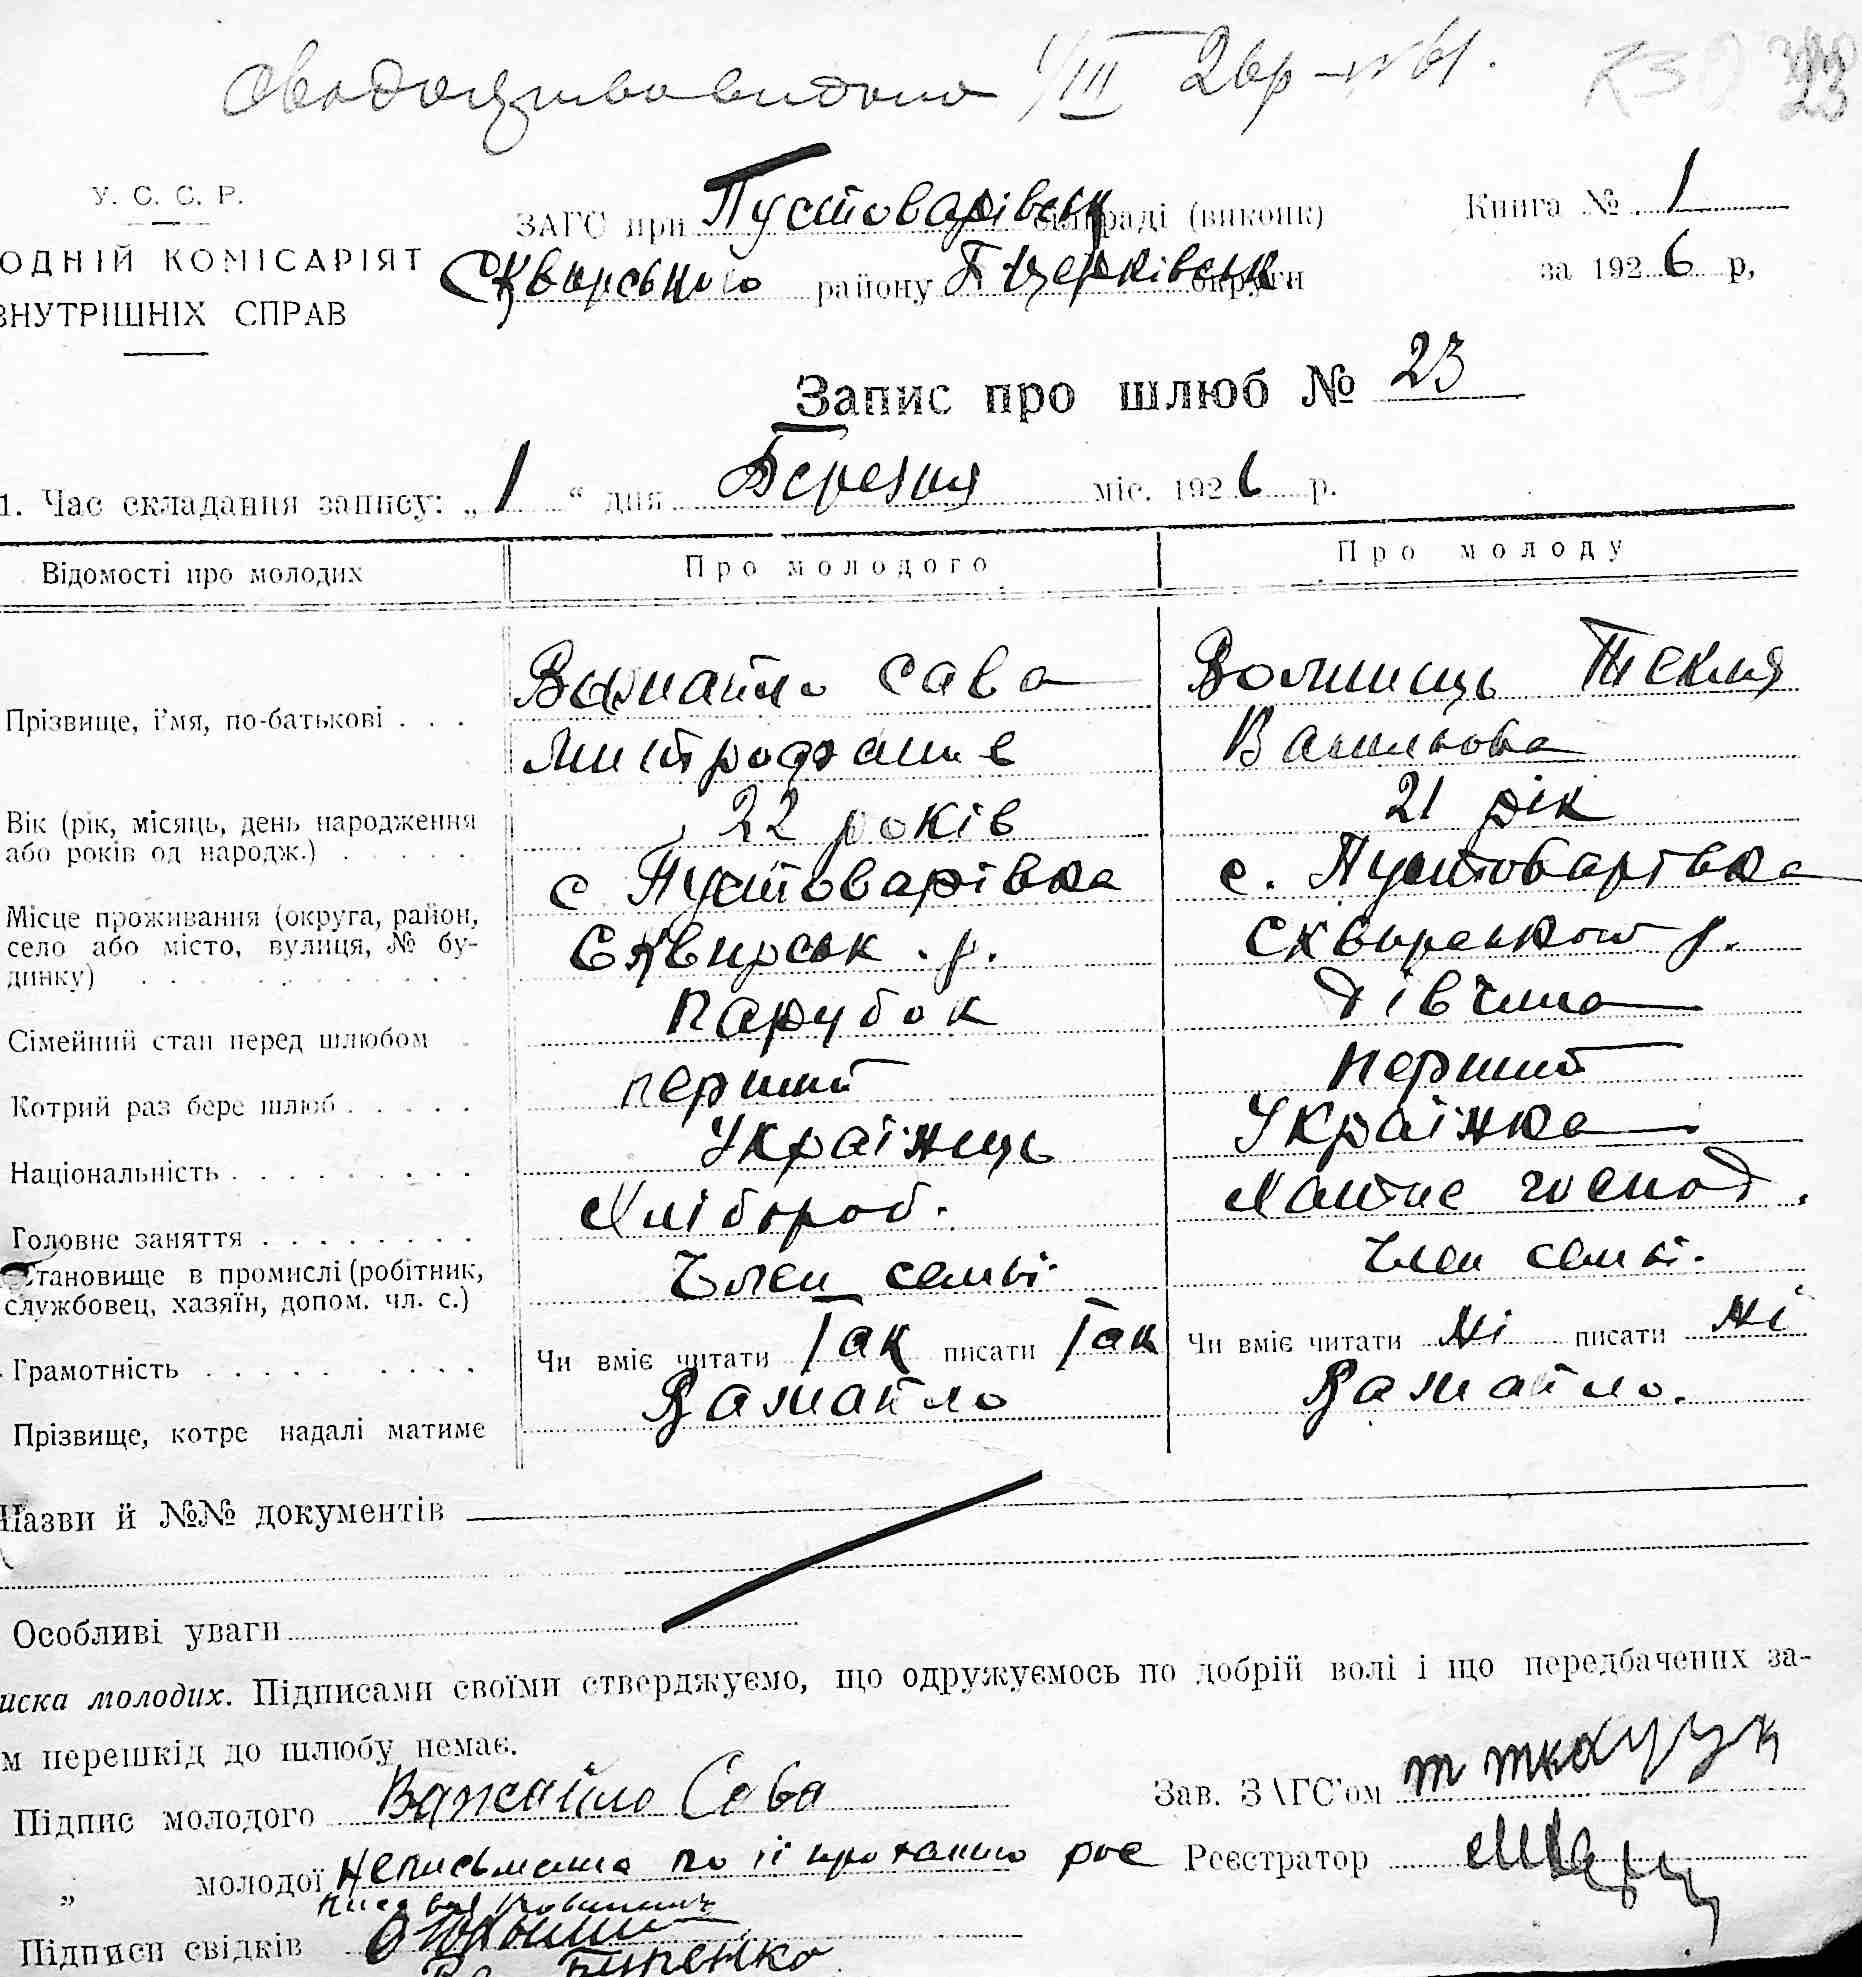 1/III 26р №61. 23
У. С. С. Р.
ЗАГС при Пустоварівськ сільраді (виконк) Книга № 1
ОДНІЙ КОМІСАРІЯТ Сквирського району Б Церківськ округи за 1926 р,
ВНУТРІШНІХ СПРАВ
Запис про шлюб № 23
1. Час складання запису: „ 1 “ дня Березня міс. 1926 р.
Відомості про молодих Про молодого Про молоду
Прізвище, і'мя, по-батькові . . . Важайло Сава Волинець Текля
Митрофанів Васильова
Вік (рік, місяць, день народження 22 років 21 рік
або років од народж.)
с Пустоварівка с. Пустоварівка
Місце проживання (округа, район,
село або місто, вулиця, № бу- Сквирськ . р. Сквирського р.
динку)
Сімейний стан перед шлюбом Парубок дівчина
Котрий раз бере шлюб перший перший
Національність Українець Українка
Головне заняття Хлібороб. Хатнє господ.
Становище в промислі (робітник, Член семьї. Член семьї.
службовец, хазяїн, допом. чл. с.)
Грамотність Чи вміє читати Так писати Так Чи вміє читати Ні писати Ні
Прізвище, котре надалі матиме Важайло Важайло.
Назви й №№ документів
Особливі уваги
иска молодих. Підписами своїми стверджуємо, що одружуємось по добрій волі і що передбачених за-
м перешкід до шлюбу немає.
Підпис молодого Важайло Сава Зав. ЗАГС'ом Т Ткачук
„ молодої неписьмена по її проханню рос Реєстратор
Підписи свідків
Буренко